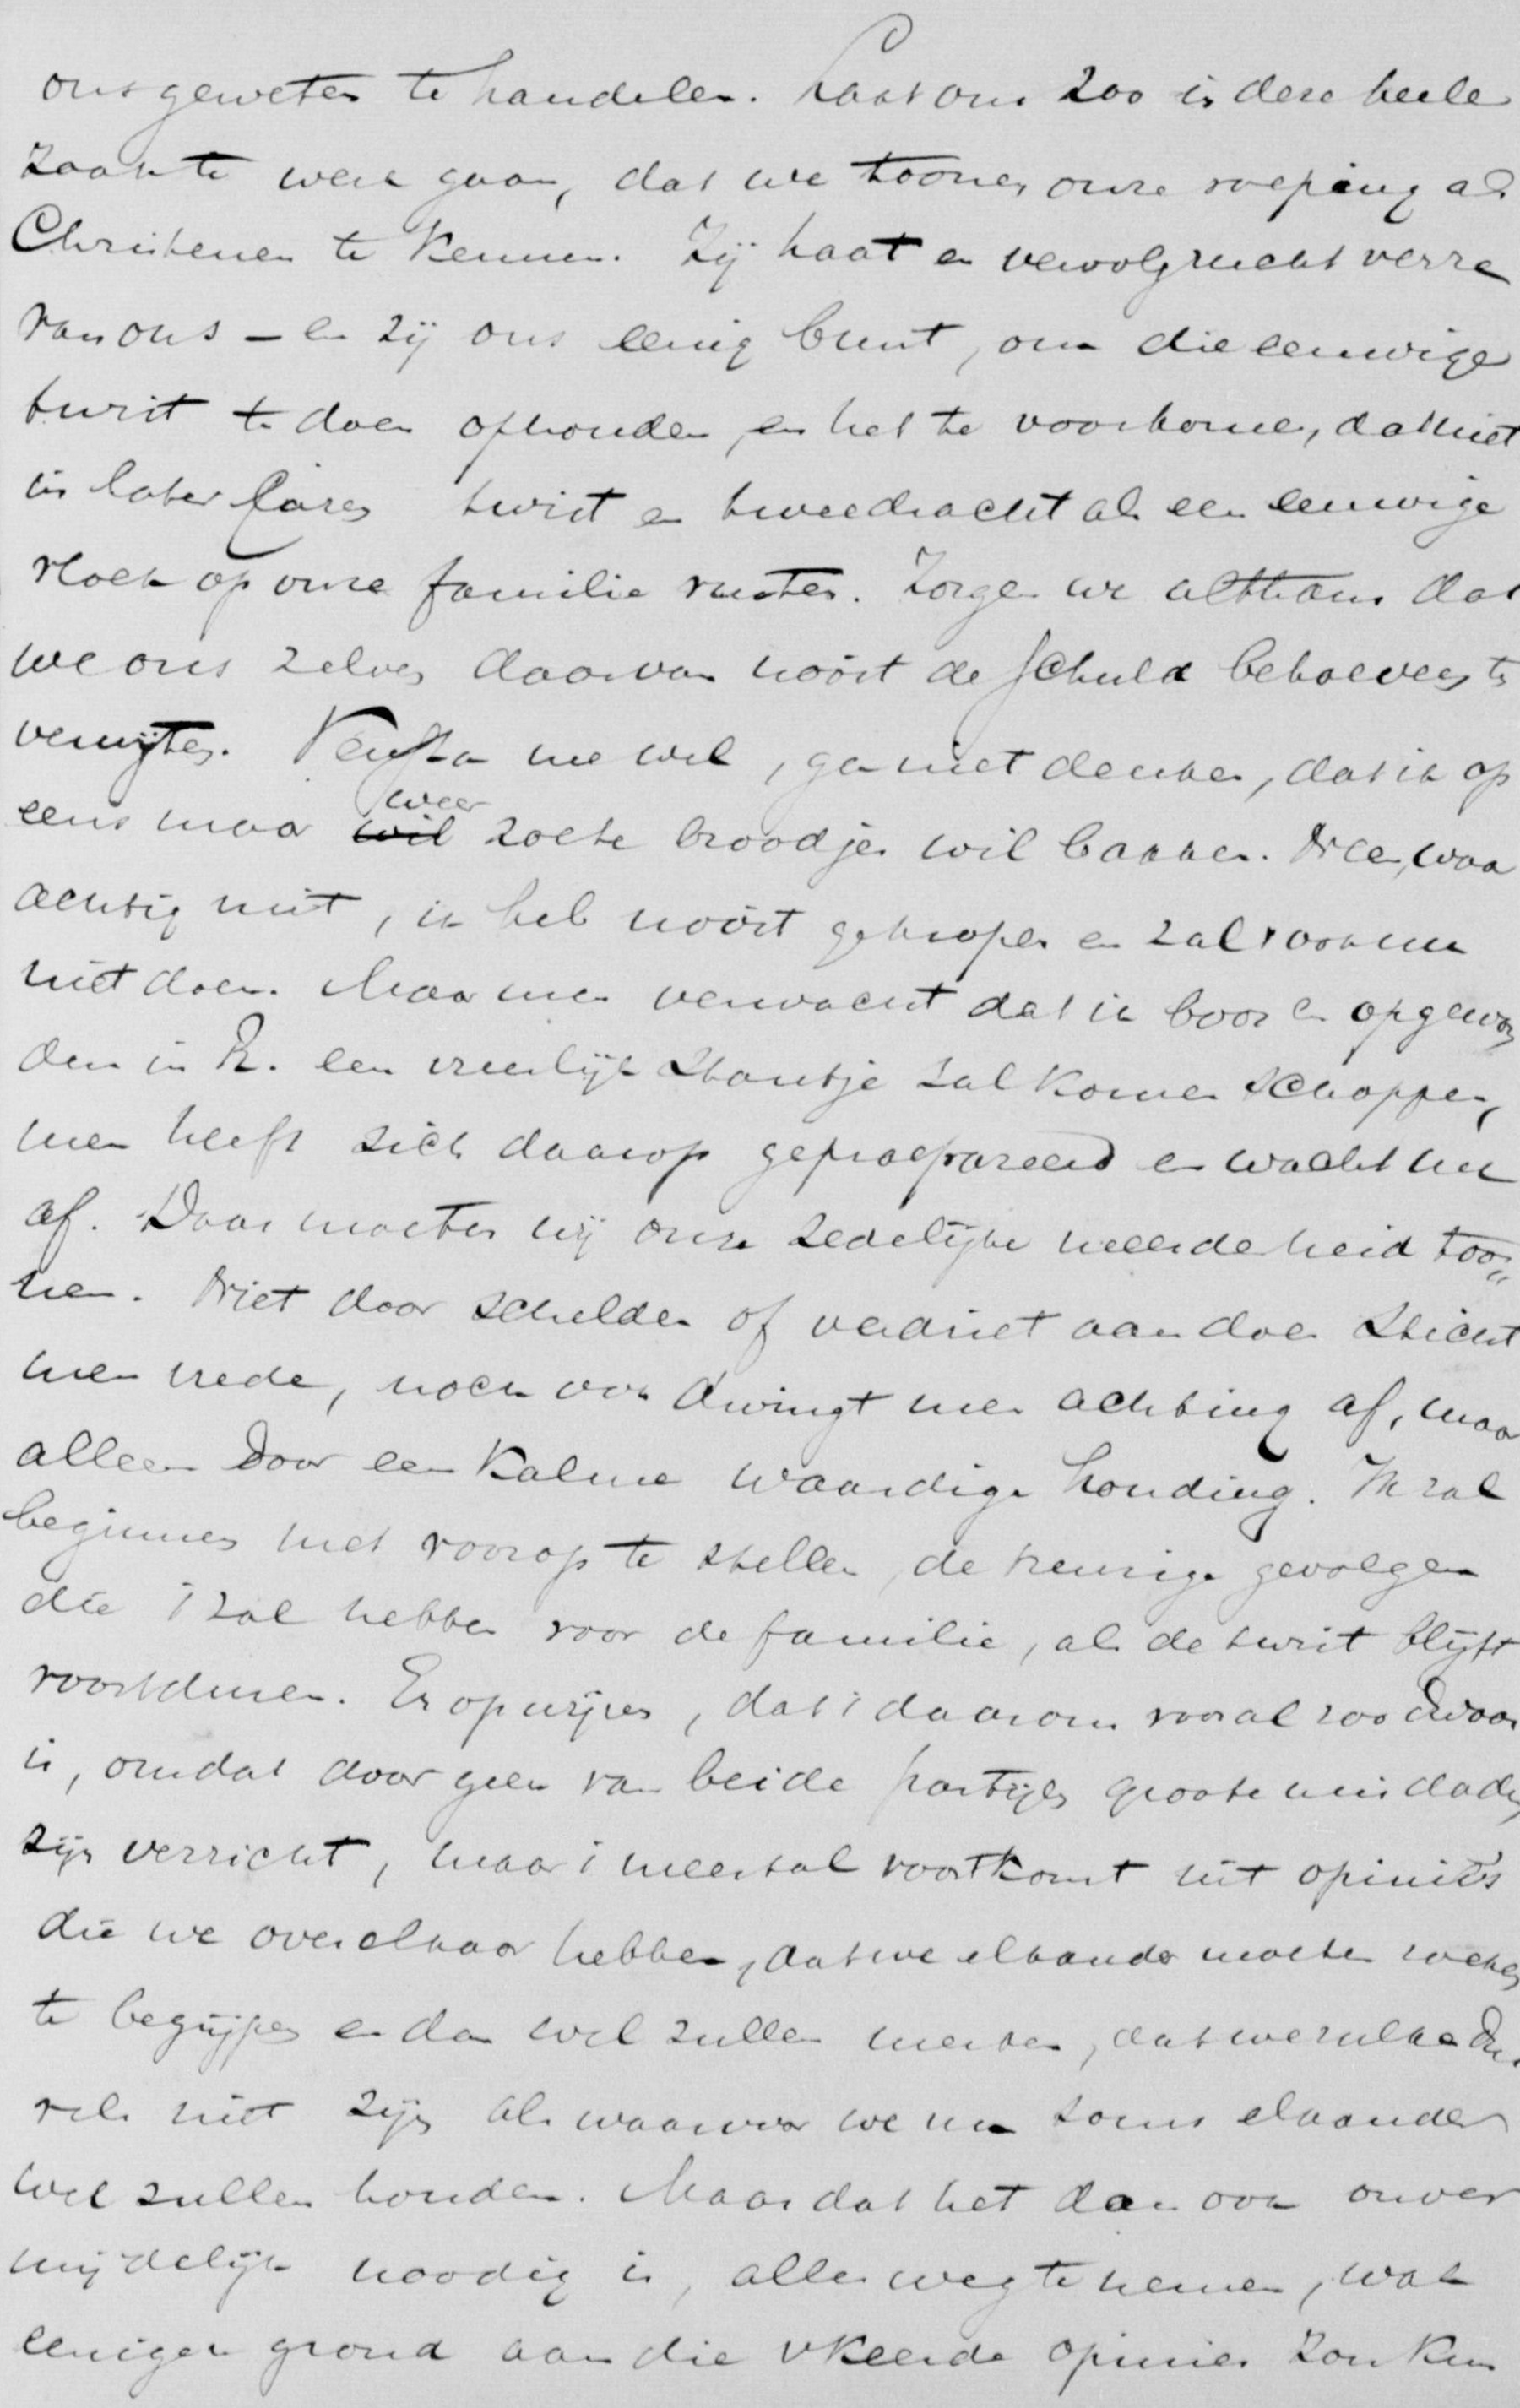 ons geweten te handelen. Laat ons zoo in deze heele
zaak te werk gaan, dat we toonen onze roeping als
Christenen te kennen. Zij haat en vervolgzucht verre
van ons – en zij ons eenig bunt, om die eeuwige
twist te doen ophouden, en het te voorkomen, dat niet
in later jaren twist en tweedracht als een eeuwige
vloek op onze familie rusten. Zorgen we althans dat
we ons zelven daarvan nooit de schuld behoeven te
verwijten. Versta me wel, ga niet denken, dat ik op
eens maar weer zoete broodjes wil bakken. Neen, waar
achtig niet, ik heb nooit gekropen en zal 't ook nu
niet doen. Maar men verwacht dat ik boos en opgewon
den in R. een vreeslijk standje zal komen schoppen,
men heeft zich daarop gepraepareerd en wacht me
af. Daar moeten wij onze zedelijke meerderheid too„
nen. Niet door schelden of verdriet aan doen sticht
men vrede, noch ook dwingt men achting af, maar
alleen door een kalme waardige houding. Ik zal
beginnen met voorop te stellen, de treurige gevolgen
die 't zal hebben voor de familie, als de twist blijft
voortduren. Er op wijzen, dat 't daarom vooral zoo dwaas
is, omdat door geen van beide partijen groote misdaden
zijn verricht, maar 't meestal voortkomt uit opinie's
die we over elkaar hebben, dat we elkander moeten zoeken
te begrijpen en dan wel zullen merken, dat we zulke dui
vels niet zijn als waarvoor we nu soms elkander
wel zullen houden. Maar dat het dan ook onver
mijdelijk noodig is, alles weg te nemen, wat
eenigen grond aan die vkeerde opinies zou kun